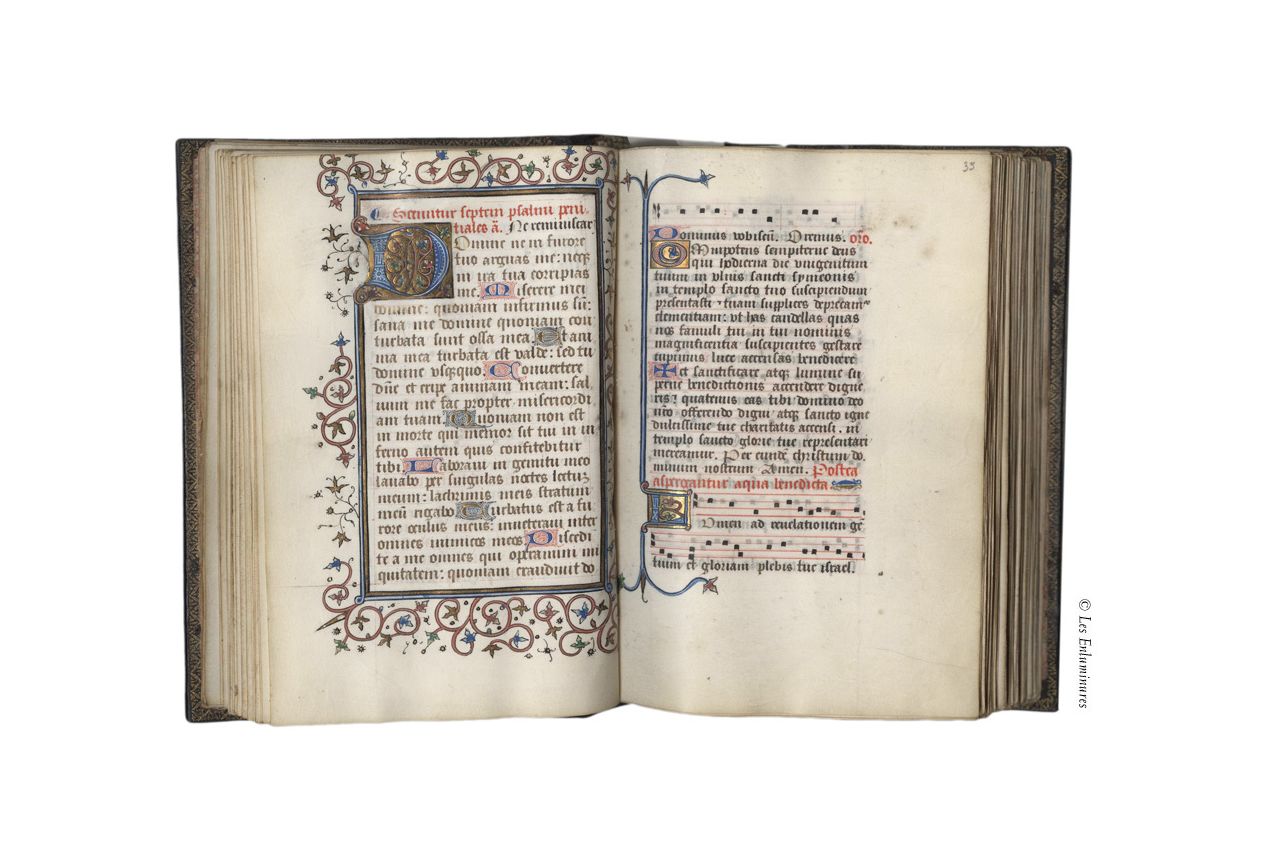 Secuntur septem psalmi peni-
tiales a. Ne reminiscar
Domine ne in furore
tuo arguas me: neqz
in ira tua corripias
me. Miserere mei
domine: quoniam infirmus sū:
sana me domine quoniam con
turbata sunt ossa mea Et ani
ma mea turbata est valde: sed tu
domine vsquequo Conuertere
dn̄e et eripe animam meam: sal
uum me fac propter misericordi
am tuam. Quoniam non est
in morte qui memor sit tui in in
ferno autem quis confitebitur
tibi Laboraui in gemitu meo
lauabo per singulas noctes lectuz
meum: lachrimis meis stratum
meū rigabo Turbatus est a fu
rore oculus meus: inueteraui inter
omnes inimicos meos Discedi
te a me omnes qui operamini ini
quitatem: quoniam exaudiuit do
35
Dominus vobiscū. Oremus. orō.
Omnipotens sempiterne deus
qui hodierna die vnigenitum
tuum in vlnis sancti symeonis
in templo sancto tuo suscipiendum
presentasti tuam supplices deprecam²
clementiam: vt has candellas quas
nos famuli tui in tui nominis
magnificentia suscipientes gestare
cupimus luce accensas benedicere
✝ et sanctificare atqz lumine su
perne benedictionis accendere digne
ris: quatenus eas tibi domino deo
nr̄o offerendo digni atqz sancto igne
dulcissime tue charitatis accensi. in
templo sancto glorie tue representari
mereamur. Per eundē christum do
minum nostrum Amen. Postea
aspergantur aqua benedicta
Lumen ad reuelationem gē
tium et gloriam plebis tue israel.
© Les Enluminures